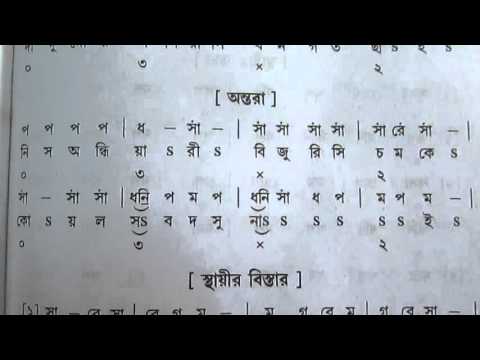 ০ ৩ × ২
[ অন্তরা ]
প প প প | ধ – র্সা – | র্সা র্সা র্সা র্সা | র্সা র্রে র্সা –
নি স অ ন্ধি য়া ऽ রী ऽ বি জু রি সি চ ম কে ऽ
০ ৩ × ২
র্সা – র্সা র্সা | ধনি প ম প | ধনি র্সা ধ প | ম প ম –
কো ऽ য় ল সऽ ব দ সূ নাऽ ऽ ऽ ऽ ऽ ऽ ই ऽ
০ ৩ × ২
[ স্থায়ীর বিস্তার ]
[১] সা – রে সা | রে গ ম – | ম গ রে ম | গ রে সা –